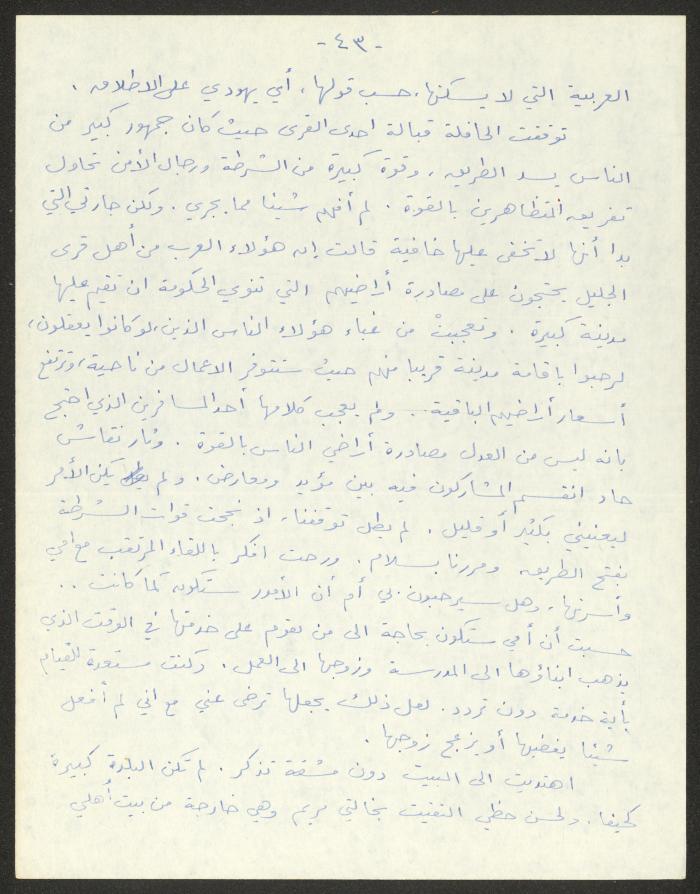 -٤٣-
العربية التي لا يسكنها، حسب قولها، أي يهودي على الاطلاق.
توقفت الحافلة قبالة احدى القرى حيث كان جمهور كبير من
الناس يسد الطريق، وقوة كبيرة من الشرطة ورجال الأمن تحاول
تفريق المتظاهرين بالقوة. لم أفهم شيئا مما يجري. ولكن جارتي التي
بدا أنها لا تخفى عليها خافية قالت إن هؤلاء العرب من أهل قرى
الجليل يحتجون على مصادرة أراضيهم التي تنوي الحكومة ان تقيم عليها
مدينة كبيرة. وتعجبتْ من غباء هؤلاء الناس الذين، لو كانوا يعقلون،
لرحبوا باقامة مدينة قريبا منهم حيث ستتوفر الاعمال من ناحية، وترتفع
أسعار أراضيهم الباقية... ولم يعجب كلامها أحد المسافرين الذي احتج
بانه ليس من العدل مصادرة أراضي الناس بالقوة. وثار نقاش
حاد انقسم المشاركون فيه بين مؤيد ومعارض. ولم يكن الأمر
ليعنيني بكثير أو قليل. لم يطل توقفنا، اذ نجحت قوات الشرطة
بفتح الطريق ومررنا بسلام. ورحت افكر باللقاء المرتقب مع امي
وأسرتها، وهل سيرحبون بي أم أن الأمور ستكون كما كانت..
حسبت أن أمي ستكون بحاجة الى من يقوم على خدمتها في الوقت الذي
يذهب ابناؤها الى المدرسة وزوجها الى العمل. وكنت مستعدة للقيام
بأية خدمة دون تردد. لعل ذلك يجعلها ترضى عني مع اني لم أفعل
شيئا يغضبها أو يزعج زوجها.
اهتديت الى البيت دون مشقة تذكر. لم تكن البلدة كبيرة
كحيفا. ولحسن حظي التقيت بخالتي مريم وهي خارجة من بيت أهلي